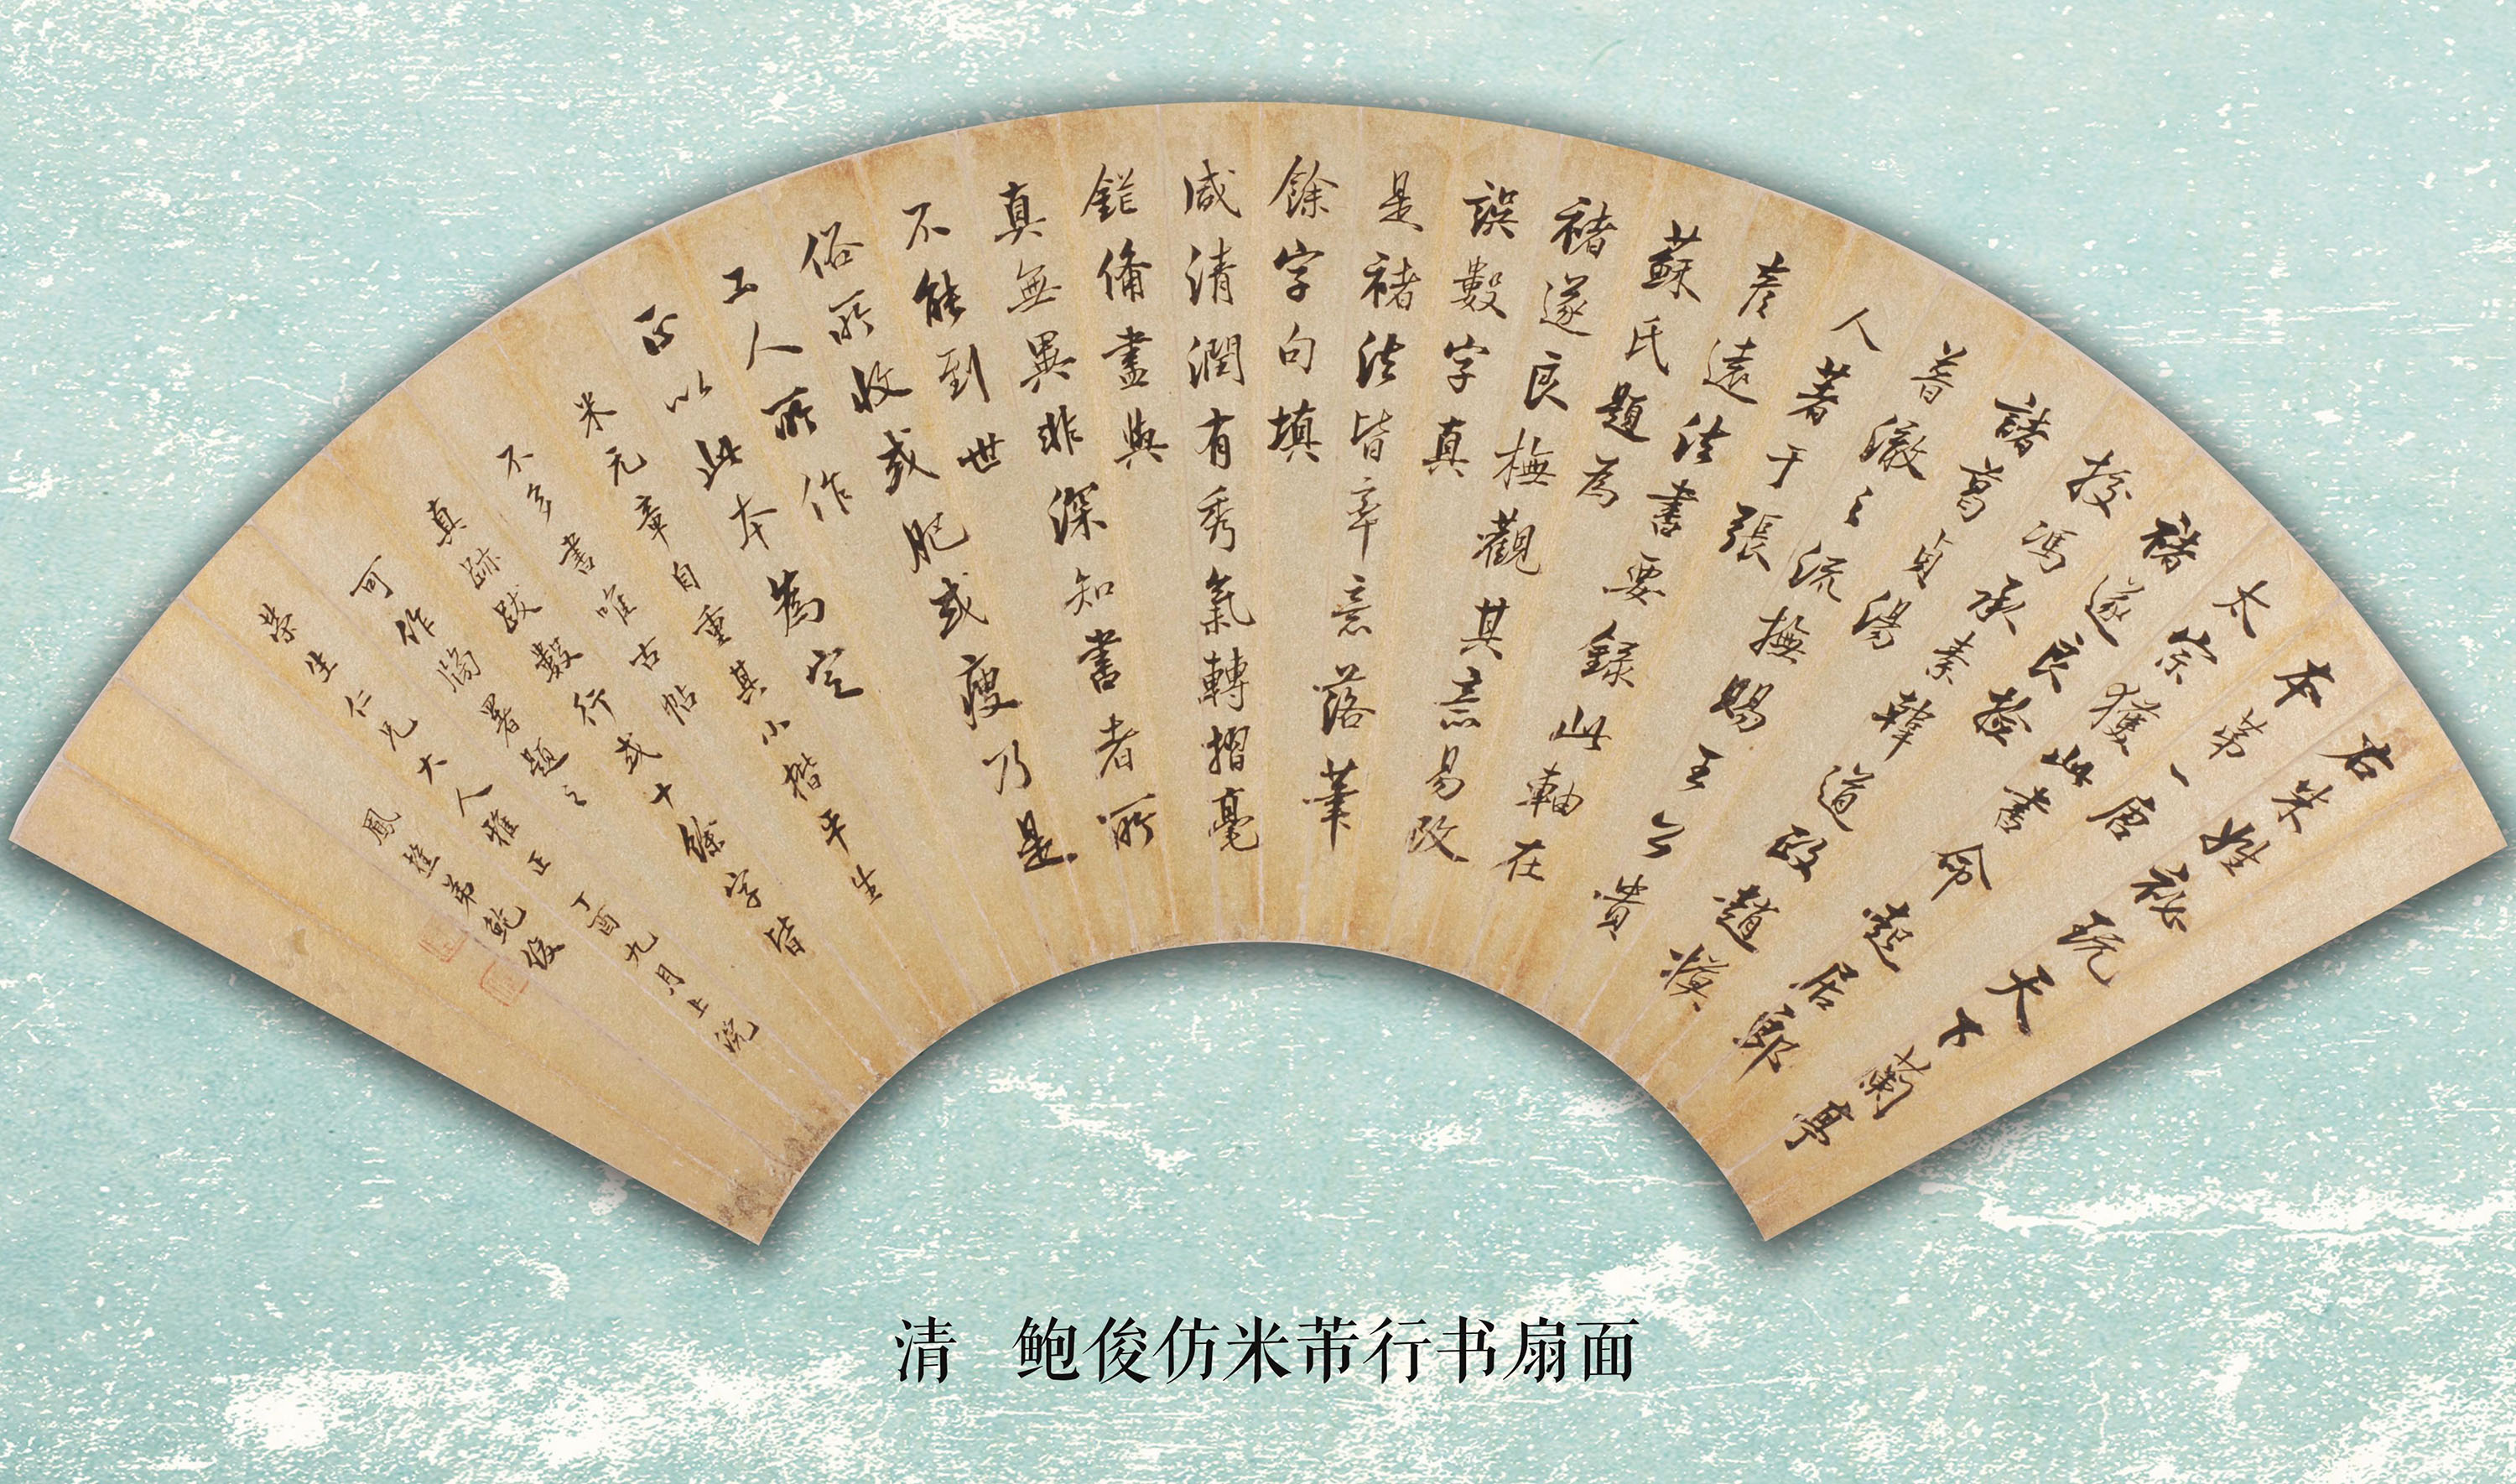 右米姓秘玩天下蘭亭
本第一唐
太宗獲此書命起居郎
褚遂良檢
挍馮承素韓道政趙模
諸葛貞湯
普澈之流橅賜王公貴
人著于張
彥遠法書要録此軸在
蘇氏題為
褚遂良橅觀其意易改
誤數字真
是褚法皆率意落筆
餘字句填
咸清潤有秀氣轉摺毫
鋩備盡與
真無異非深知書者所
不能到世
俗所收或肥或瘦乃是
工人所作
正以此本為定
米元章自重其小楷平生
不多書唯古帖
真跡跋數行或十餘字皆
可作牓署題之
榮生仁兄大人雅正 丁酉九月上浣
鳳樵弟鮑俊
清 鲍俊仿米芾行书扇面